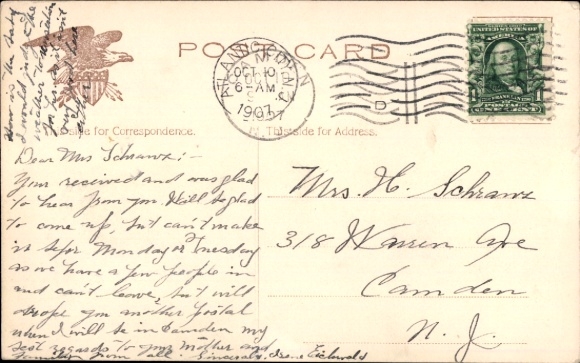 How is the baby
I would judge the
weather
POST CARD
OCT 10
6-AM
1907
UNITED STATES OF
AMERICA
FRANKLIN
POSTAGE
ONE CENT
side for Correspondence.
This side for Address.
Dear Mrs Schranz:-
Your received and was glad
to hear from you. Will be glad
to come up, but can't make
it before Monday or Tuesday
as we have a few people in
and can't leave, but will
drope you another postal
when I will be in Camden my
best regards to your mother and
family from all. Sincerely, Irene Eichwald
Mrs. H. Schranz
318 Warren Ave
Camden
N. J.